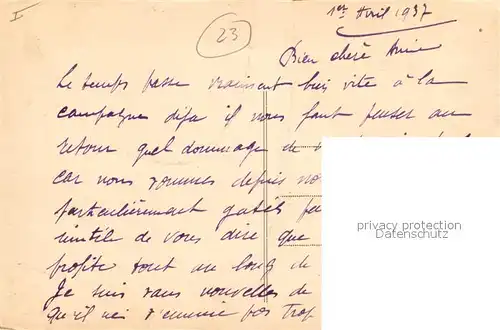 I
23
1er Avril 1937
Bien chère Amie
Le temps passe vraiment bien vite à la
campagne déja il nous faut penser au
retour quel dommage de
car nous sommes depuis no
particulièrement gatés pa
inutile de vous dire que
profite tout au long de
Je suis sans nouvelles de
qu'il ne s'ennuie pas trop
privacy protection
Datenschutz